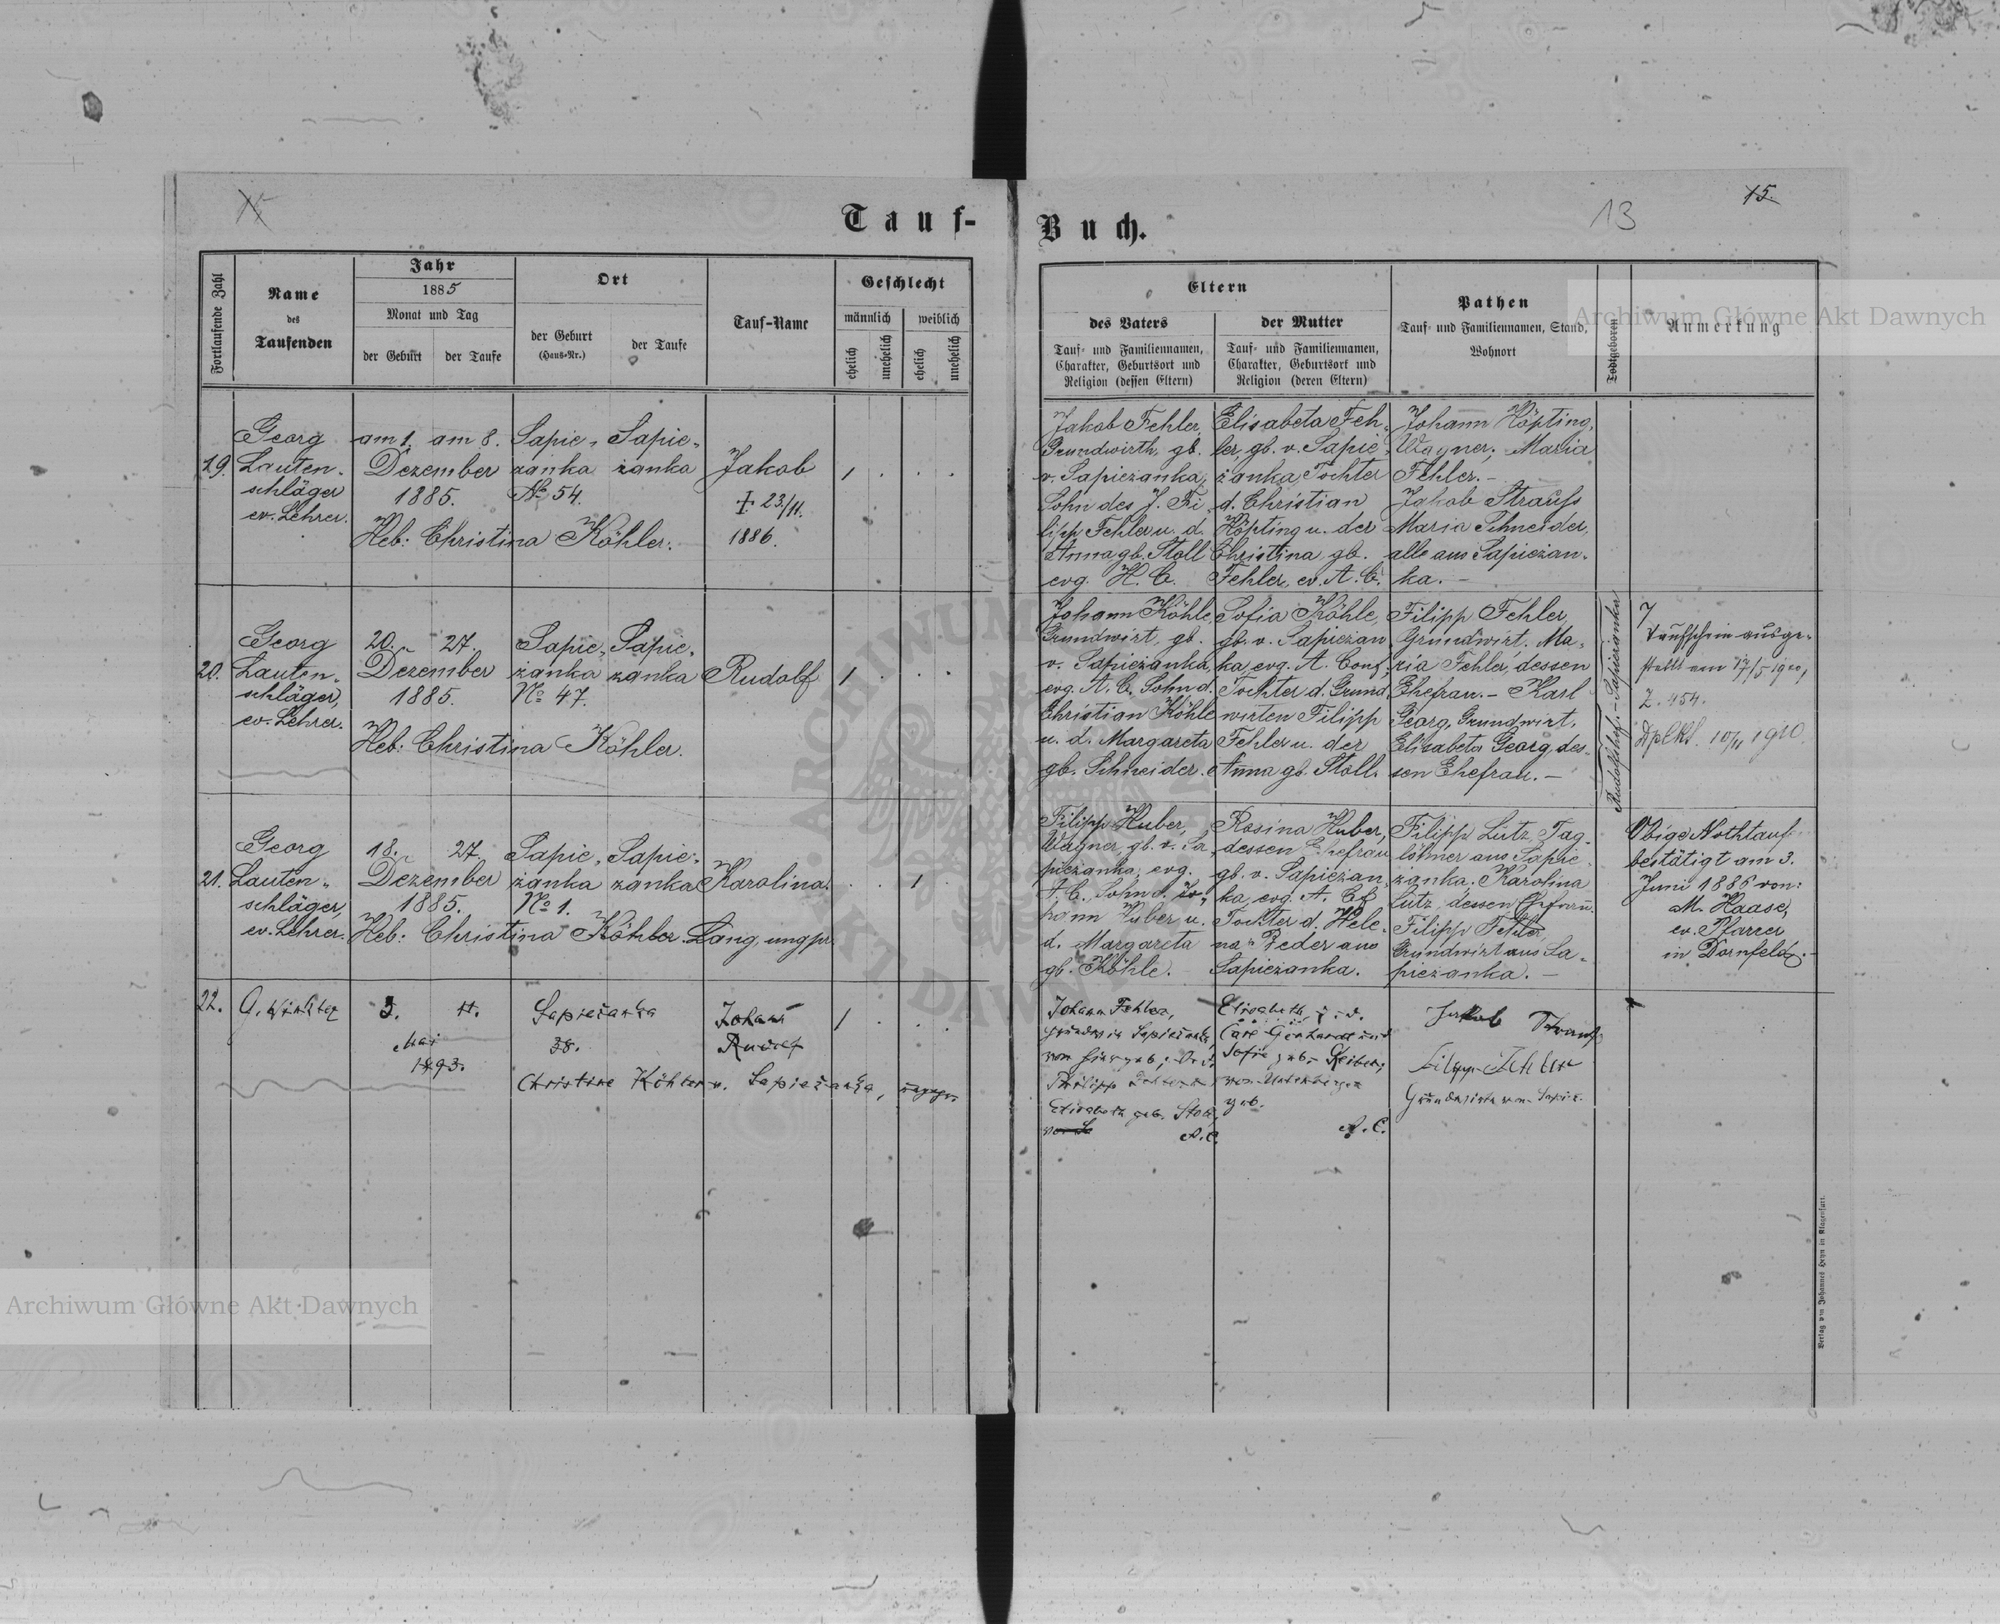 15
Tauf-
Buch.
13
15.
Fortlaufende Zahl
Name
des
Taufenden
Jahr
1885
Monat und Tag
der Geburt
der Taufe
Ort
der Geburt
(Haus-Nr.)
der Taufe
Tauf-Name
Geschlecht
männlich
weiblich
ehelich
unehelich
ehelich
unehelich
Eltern
des Vaters
Tauf- und Familiennamen,
Charakter, Geburtsort und
Religion (dessen Eltern)
der Mutter
Tauf- und Familiennamen,
Charakter, Geburtsort und
Religion (deren Eltern)
Pathen
Tauf- und Familiennamen, Stand,
Wohnort
Todtgeboren
Anmerkung
19.
Georg
Lauten-
schläger
ev. Lehrer.
am 1. am 8.
Dezember
1885.
Sapie-
zanka
No 54.
Sapie-
zanka
Heb: Christina Köhler.
Jakob
† 23/11.
1886.
1
Jakob Fehler,
Grundwirth, gb.
v. Sapiezanka,
Sohn des J. Fi-
lipp Fehler u. d.
Anna gb. Stoll
evg. H. C.
Elisabeta Feh-
ler, gb. v. Sapie-
żanka Tochter
d. Christian
Höpting u. der
Christina gb.
Fehler, ev. A. C.
Johann Höpting,
Wagner; Maria
Fehler.-
Jakob Strauss
Maria Schneider,
alle aus Sapiezan-
ka. -
20.
Georg
Lauten-
schläger,
ev. Lehrer.
20. 27.
Dezember
1885.
Sapie-
żanka
No 47.
Sapie-
zanka
Heb: Christina Köhler.
Rudolf
1
Johann Köhle,
Grundwirt, gb.
v. Sapiezanka,
evg. A. C. Sohn d.
Christian Köhle
u. d. Margareta
gb. Schneider.
Sofia Köhle,
gb. v. Sapiezan-
ka, evg. A. Conf.
Tochter d. Grund-
wirten Filipp
Fehler u. der
Anna gb. Stoll.
Filipp Fehler,
Grundwirt. Ma-
ria Fehler, dessen
Ehefrau. - Karl
Georg, Grundwirt.
Elisabeta Georg, des-
sen Ehefrau. -
Rudolfshof. - Sapiezanka
Taufschein ausge-
stellt am 17/5 1900,
Z. 454.
Dplkt. 10/11 1910.
21.
Georg
Lauten-
schläger,
ev. Lehrer.
18. 27.
Dezember
1885.
Sapie-
żanka
No 1.
Sapie-
zanka
Heb: Christina Köhler
Karolina.
1
Filipp Huber,
Wagner, gb. v. Sa-
piezanka, evg.
A. C. Sohn d. Jo-
hann Huber, u.
d. Margareta
gb. Köhle.
Rosina Huber,
dessen Ehefrau
gb. v. Sapiezan-
ka, evg. A. Cf.
Tochter d. Hele-
na Feder aus
Sapiezanka.
Filipp Lutz, Tag-
löhner aus Sapie-
zanka. Karolina
Lutz, dessen Ehefrau.
Filipp Fehler
Grundwirt aus Sa-
piezanka. -
Obige Nothtauf
bestätigt am 3.
Juni 1886 von:
M. Haase,
ev. Pfarrer
in Dornfeld.
22.
3. 11.
Mai
1893.
Sapiežanka
38.
Christine Köhler v. Sapiežanka,
Johann
Rudolf
1
Johann Fehler,
Philipp
Elisabeth geb. Stoll,
A.C.
Elisabeth,
geb.
A. C.
Jakob Strauss
Filipp Fehler
Archiwum Główne Akt Dawnych
Archiwum Główne Akt Dawnych
Verlag von Johannes Heyn in Klagenfurt.